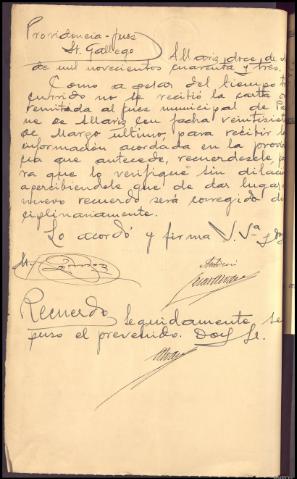 Providencia-Juez
Sr. Gallego
Allariz, doce de
de mil novecientos cuarenta y tres.
Como a pesar del tiempo
currido no se recibió la carta
remitada al juez municipal de
de Allariz con fecha veintiseis
de Marzo último, para recibir
información acordada en la provi
cia que antecede, recuerdesele, pa
ra que lo verifique sin dilac
apercibiendole que de dar lugar
nuevo recuerdo será corregido di
ciplinariamente.
Lo acordó y firma V. Sª y doy
Recuerdo Seguidamente se
puso el prevenido. Doy fe.